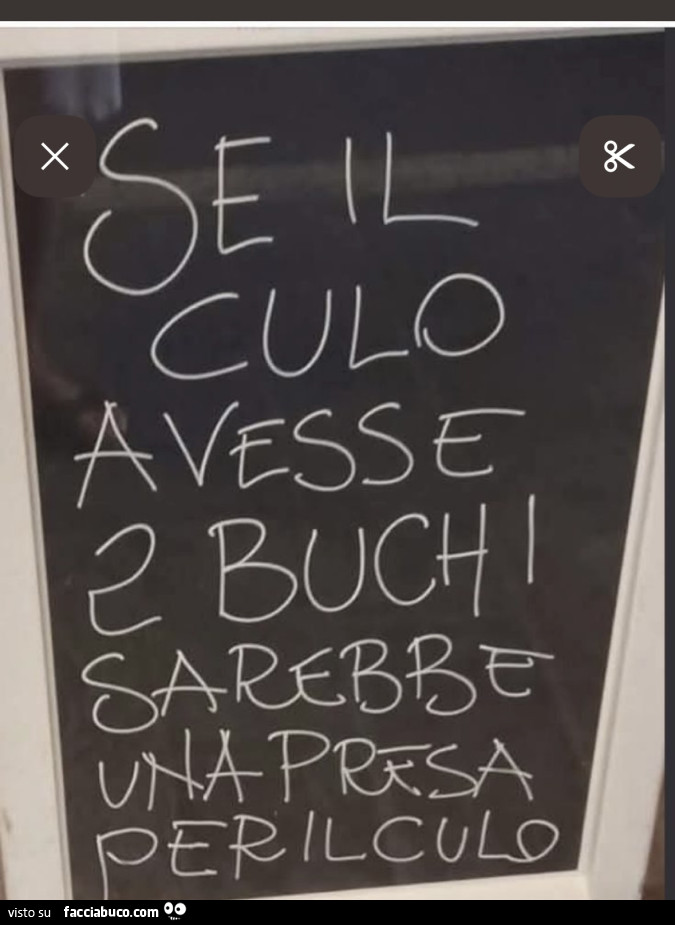 SE IL
CULO
AVESSE
2 BUCHI
SAREBBE
UNA PRESA
PER IL CULO
visto su facciabuco.com